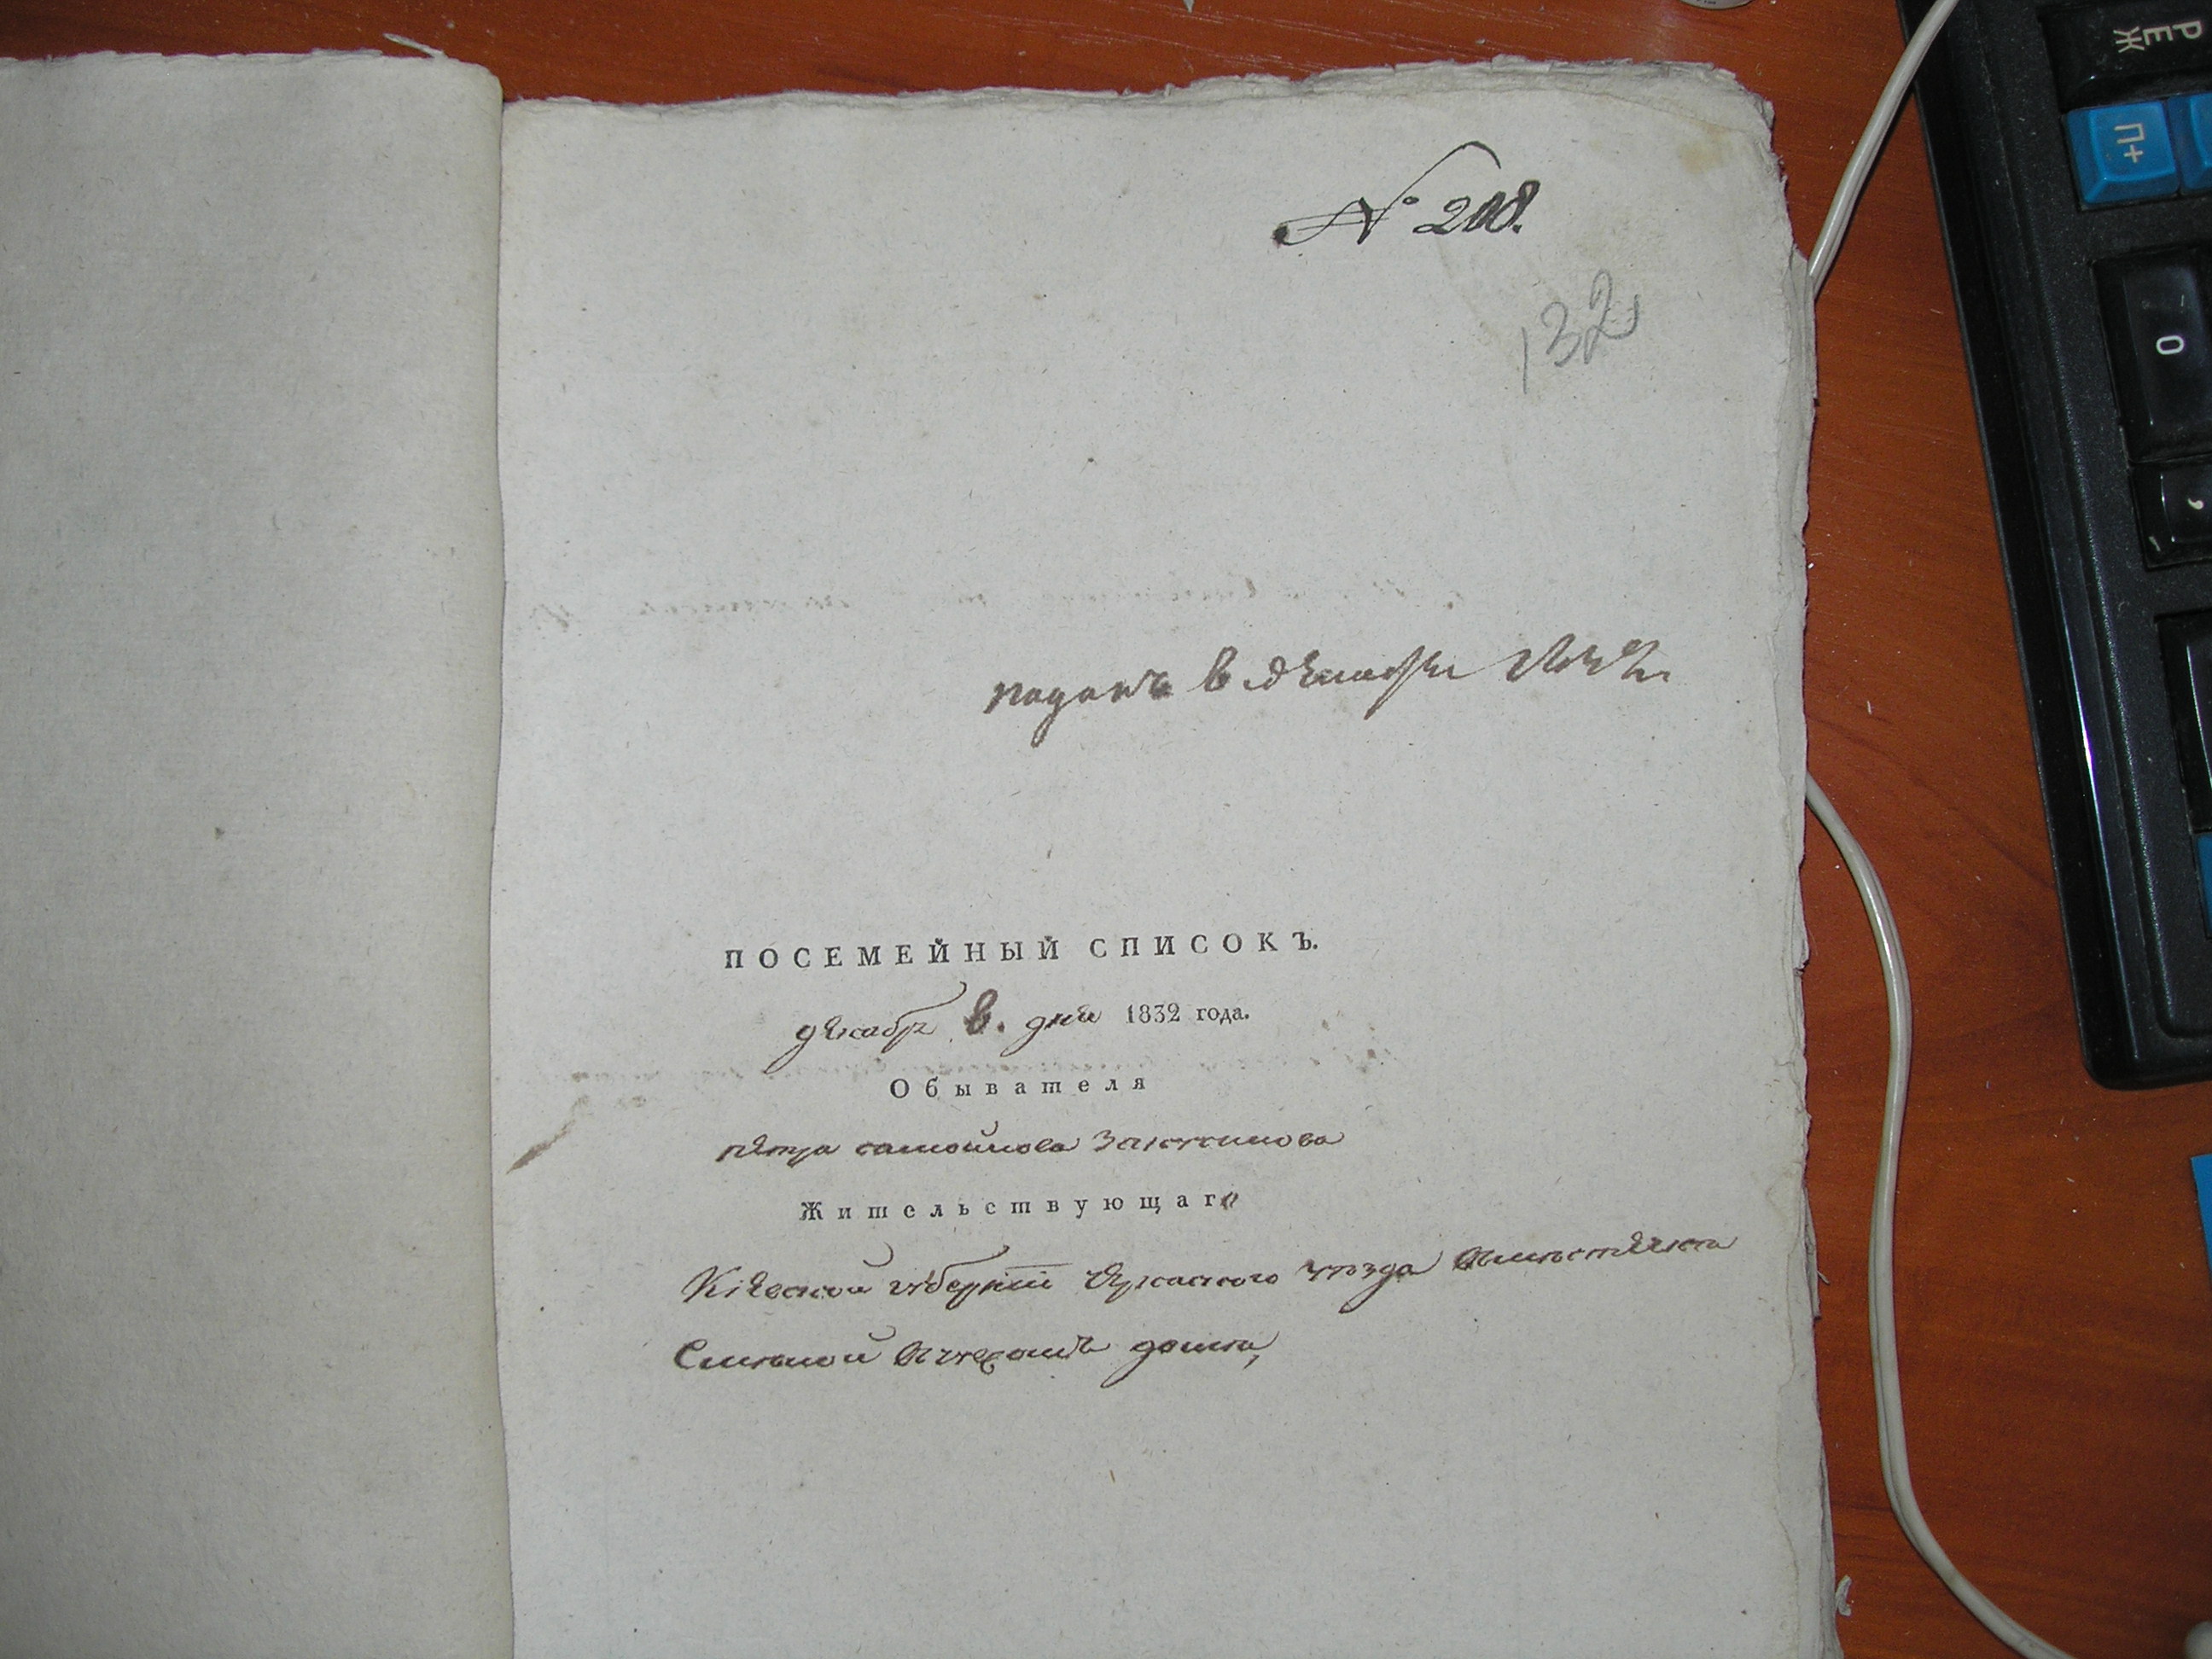 № 208.
132
поданъ в декабри
ПОСЕМЕЙНЫЙ СПИСОКЪ.
декабр в. дня 1832 года.
Обывателя
петра самойлова
Жительствующаго
Кіевской губерніи Черкаского уезда вместечки
Смилой
РЕ
Ж
П+
0
,